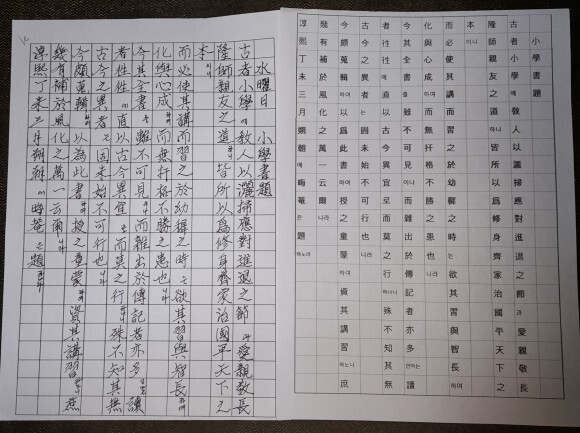 小學書題
古者小學에 敎人以灑掃應對進退之節과 愛親敬長
隆師親友之道하니 皆所以爲修身齊家治國平天下之
本이니
而必使其講而習之於幼穉之時는 欲其習與智長하며
化與心成하여 而無扞格不勝之患也니라
今其全書를 雖不可見이나 而雜出於傳記者亦多언마는 讀
者往往에 直以古今異宜로 而莫之行하나니 殊不知其無
古今之異者는 固未始不可行也니라
今頗蒐輯하여 以爲此書하여 授之童蒙하여 資其講習하노니 庶
幾有補於風化之萬一云爾니라
淳熙丁未三月朔朝에 晦菴은 題하노라
水曜日 小學書題
古者小學에 敎人以灑掃應對進退之節과 愛親敬長
隆師親友之道 皆所以爲修身齊家治國平天下之
本이니
而必使其講而習之於幼穉之時는 欲其習與智長
化與心成 而無扞格不勝之患也니라
今其全書 雖不可見 而雜出於傳記者亦多 讀
者往往 直以古今異宜 而莫之行 殊不知其無
古今之異者는 固未始不可行也니라
今頗蒐輯 以爲此書 授之童蒙 資其講習 庶
幾有補於風化之萬一云爾니라
淳熙丁未三月朔朝에 菴은 題